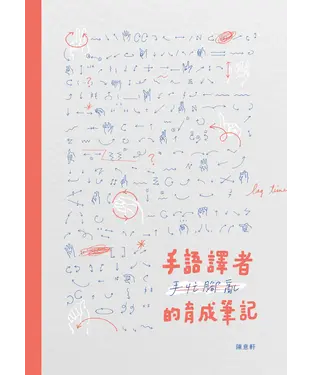 lag time
手語譯者
手忙腳亂
的育成筆記
陳意軒